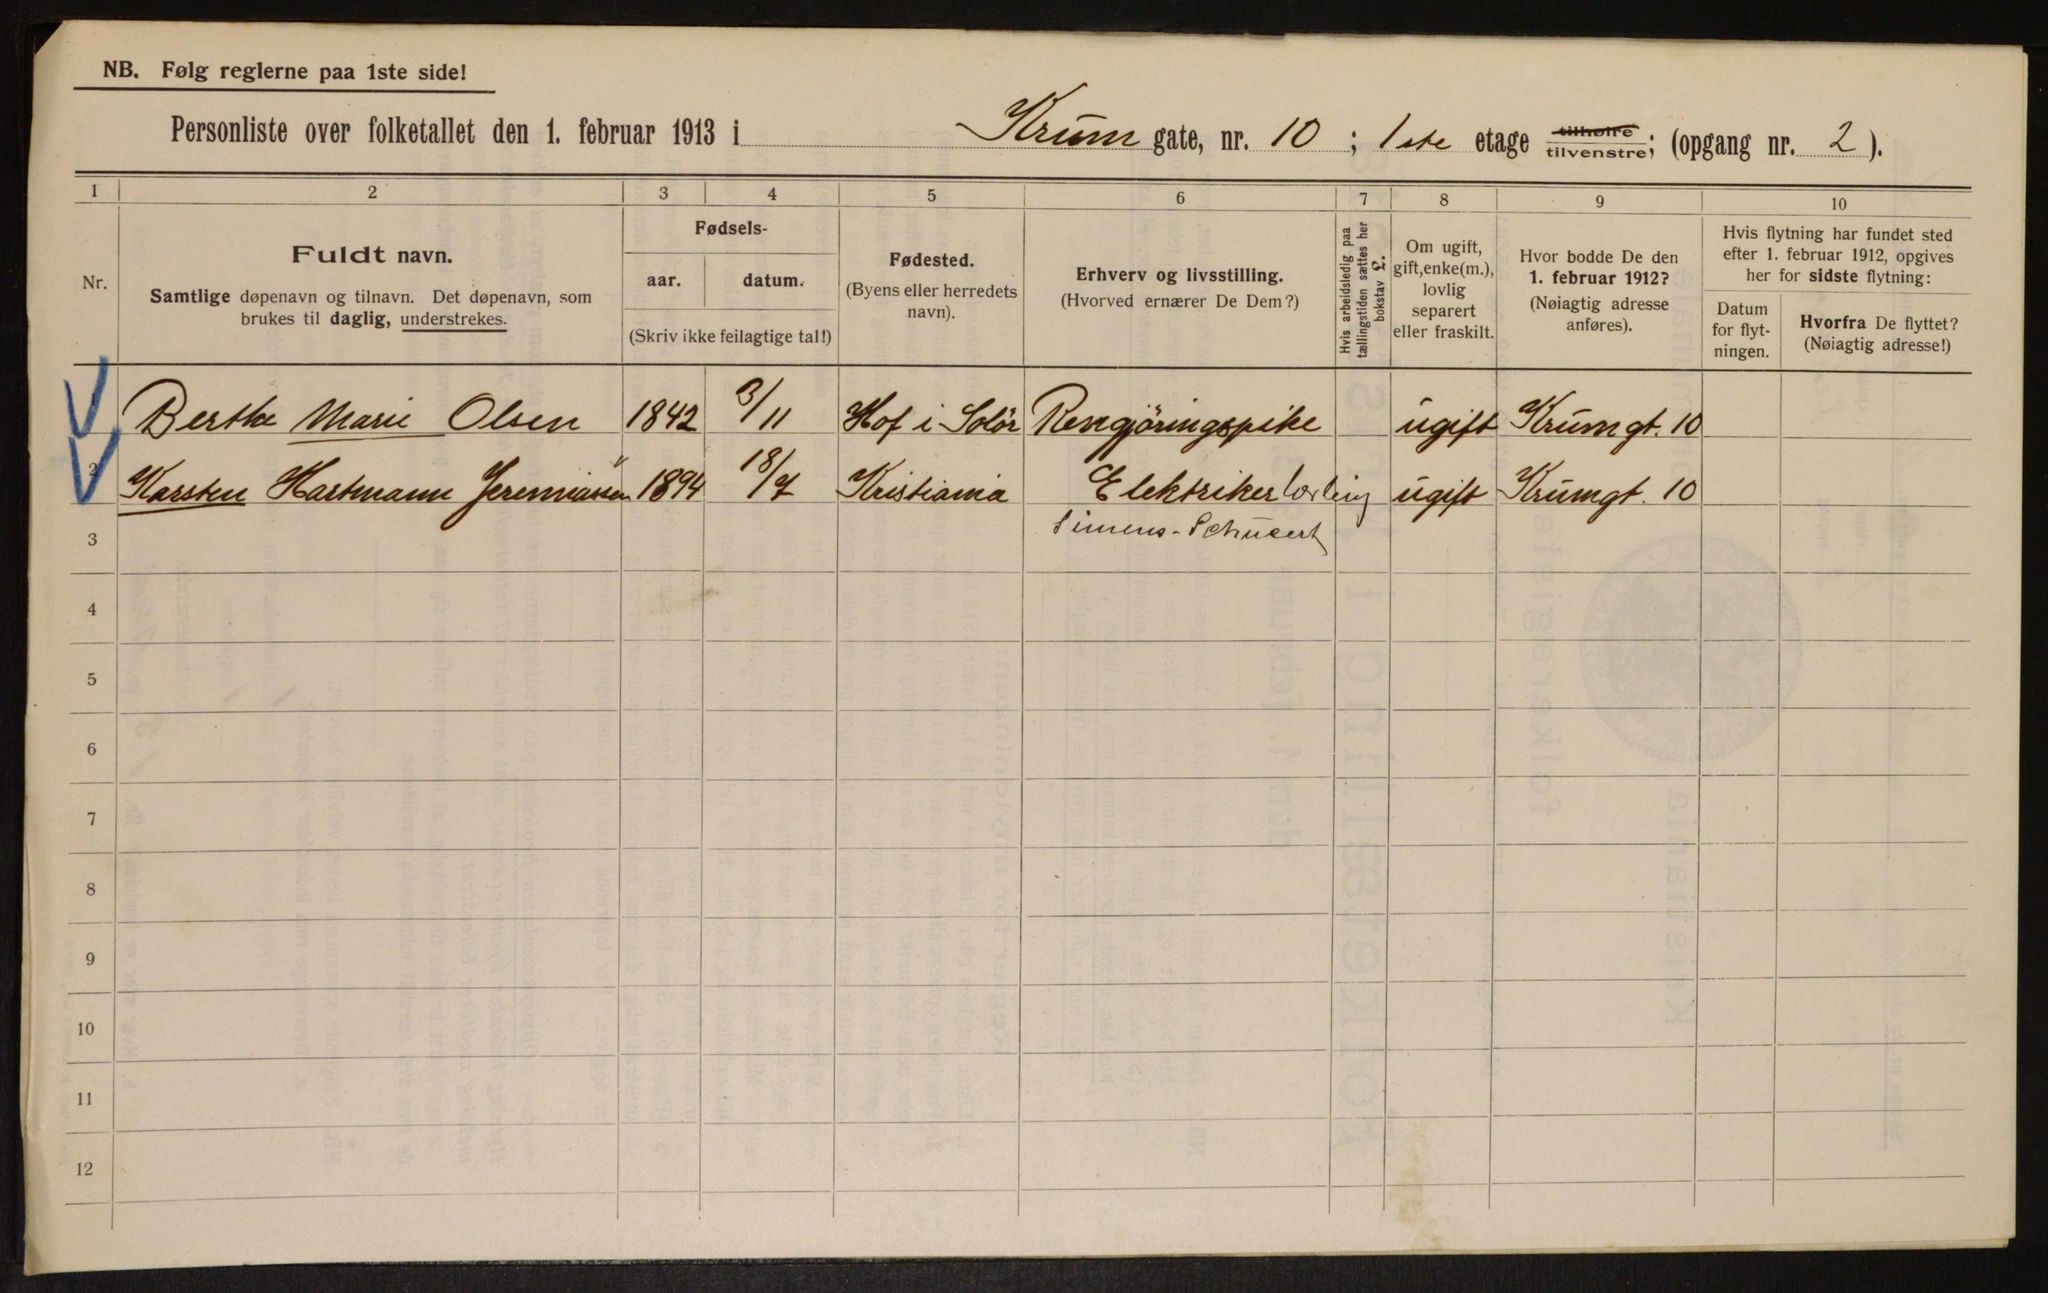 NB. Følg reglerne paa 1ste side!
Personliste over folketallet den 1. februar 1913 i Krum gate, nr. 10 ; 1ste etage tilhøire tilvenstre; (opgang nr. 2 ).
1 2 3 4 5 6 7 8 9 10
Nr.
Fuldt navn.
Samtlige døpenavn og tilnavn. Det døpenavn, som
brukes til daglig, understrekes.
Fødsels-
aar. datum.
(Skriv ikke feilagtige tal!)
Fødested.
(Byens eller herredets
navn).
Erhverv og livsstilling.
(Hvorved ernærer De Dem?)
Hvis arbeidsledig paa
tællingstiden sættes her
bokstav L.
Om ugift,
gift, enke(m.),
lovlig
separert
eller fraskilt.
Hvor bodde De den
1. februar 1912?
(Nøiagtig adresse
anføres).
Hvis flytning har fundet sted
efter 1. februar 1912, opgives
her for sidste flytning:
Datum
for flyt-
ningen.
Hvorfra De flyttet?
(Nøiagtig adresse!)
Berthe Marie Olsen 1842 3/11 Hof i Solør Rengjöringspike ugift Krumgt. 10
2 Karsten Hartmann Jeremiassen 1894 18/7 Kristiania Elektrikerlærling ugift Krumgt. 10
Simens-Schucert
3
4
5
6
7
8
9
10
11
12